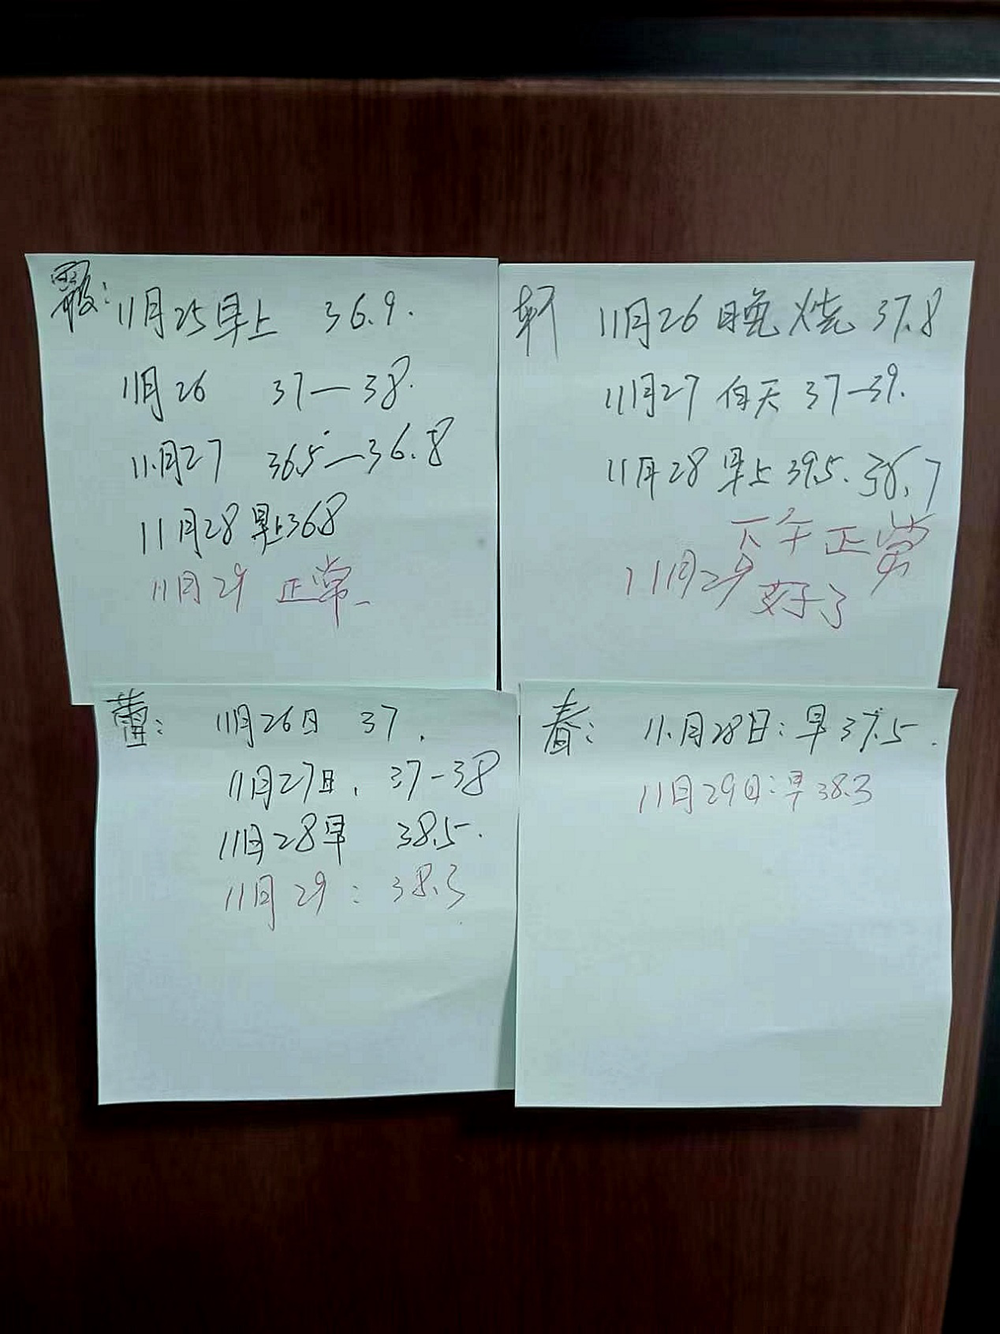 霞:11月25早上 36.9.
11月26 37—38.
11月27 36.5—36.8
11月28早上36.8
11月29 正常
轩 11月26晚烧 37.8
11月27 白天 37—39.
11月28 早上 39.5. 36.7
下午正常
11月29 好了
蕾: 11月26日 37.
11月27日. 37-38
11月28早 38.5.
11月29: 38.3
春: 11.月28日:早37.5.
11月29日:早38.3